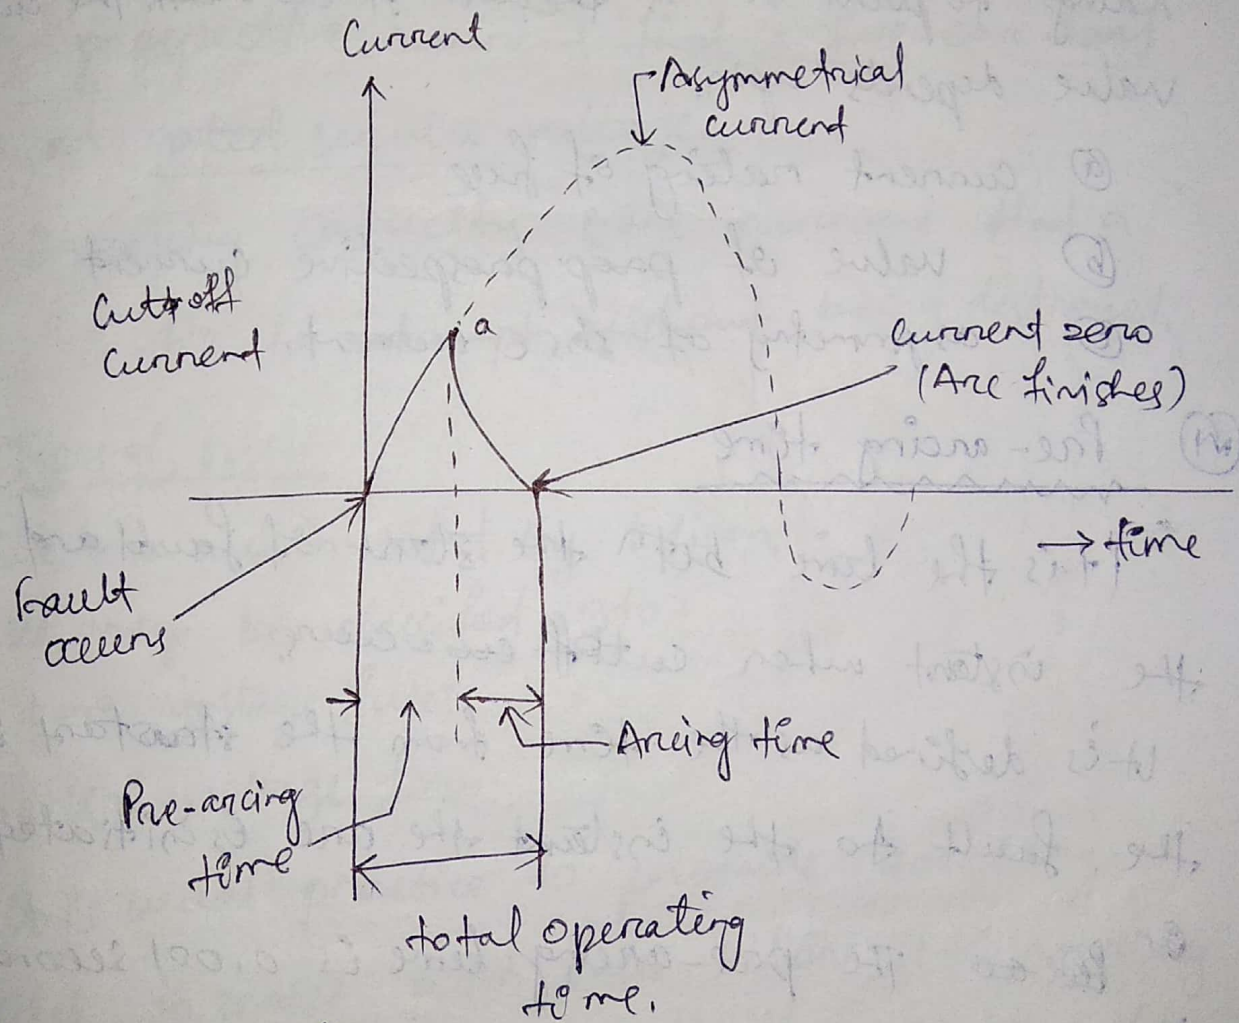 Current
Asymmetrical
current
Cutt off
Current
a
Current zero
(Arc finishes)
→ time
Fault
occurs
Arcing time
Pre-arcing
time
total operating
time.